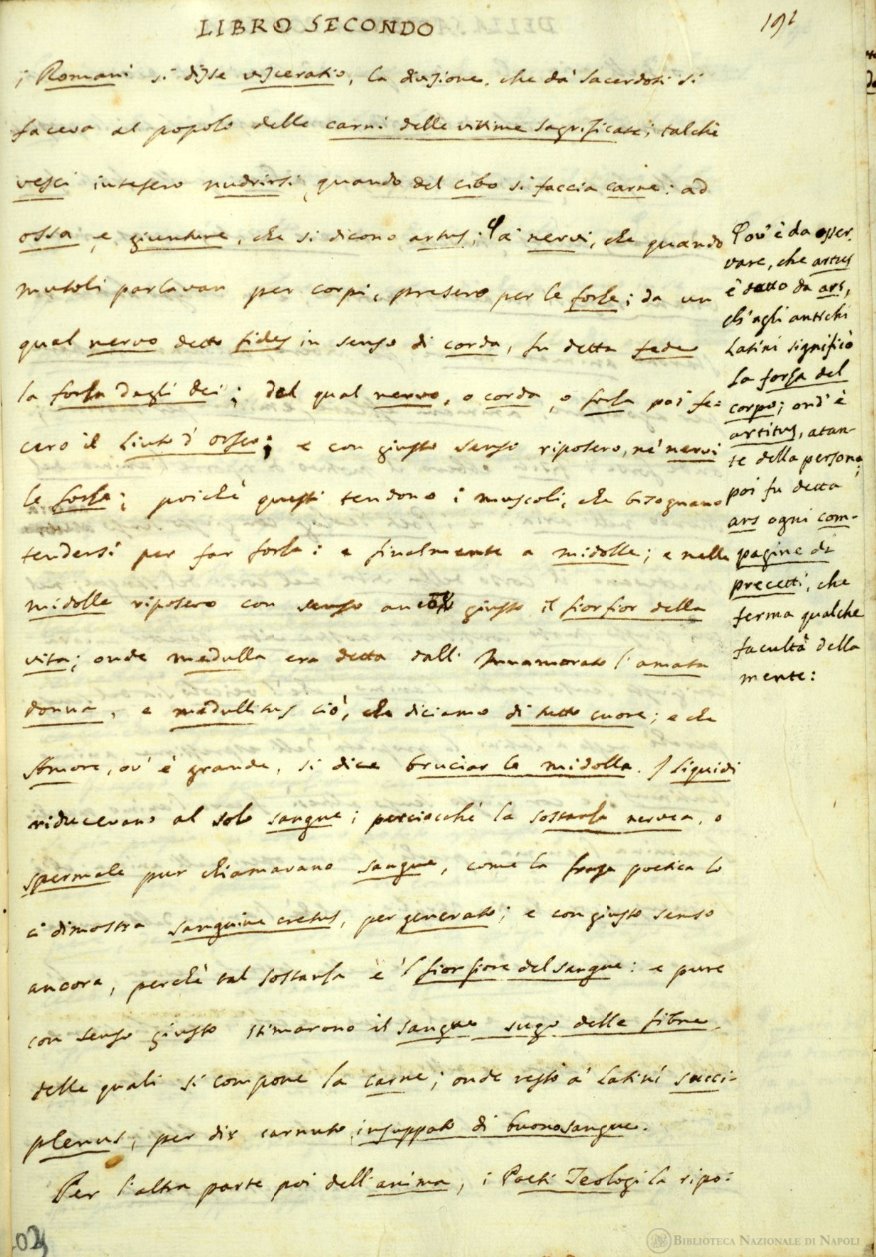 LIBRO SECONDO
192
i Romani si disse visceratio, la divisione, che da' sacerdoti si
faceva al popolo delle carni delle vittime sagrificate; talchè
vesci intesero nudrirsi, quando del cibo si faccia carne: ad
ossa e, giunture, che si dicono artus; a' nervi, che quando
mutoli parlavan per corpi, presero per le forze; da un
qual nervo detto fides in senso di corda, fu detta fede
la forza degli dei; del qual nervo, o corda, o forza poi fe-
cero il Liuto d' Orfeo; e con giusto senso riposero, ne' nervi
le forze; poichè questi tendono i muscoli, che bisognano
tendersi per far forza: e finalmente a midolle; e nelle
midolle riposero con senso ancor giusto il fior fior della
vita; onde medulla era detta dall' Innamorato l' amata
donna, e medullitus ciò, che diciamo di tutto cuore; e che
Amore, ov' è grande, si dice bruciar le midolla. I Liquidi
riducevano al solo sangue; perciocchè la sostanza nervea, o
spermale pur chiamavano sangue, come la frase poetica lo
ci dimostra sanguine cretus, per generato; e con giusto senso
ancora, perchè tal sostanza è 'l fior fiore del sangue: e pure
con senso giusto stimarono il sangue sugo delle fibre,
delle quali si compone la carne; onde restò a' Latini succi-
plenus, per dir carnuto, insuppato di buono sangue.
Per l' altra parte poi dell' anima, i Poeti Teologi la ripo-
Ov' è da osser-
vare, che artus
è detto da ars,
ch' agli antichi
Latini significò
la forza del
corpo; ond' è
artitus, atan-
te della persona;
poi fu detta
ars ogni com-
pagine di
precetti, che
ferma qualche
facultà della
mente:
BIBLIOTECA NAZIONALE DI NAPOLI